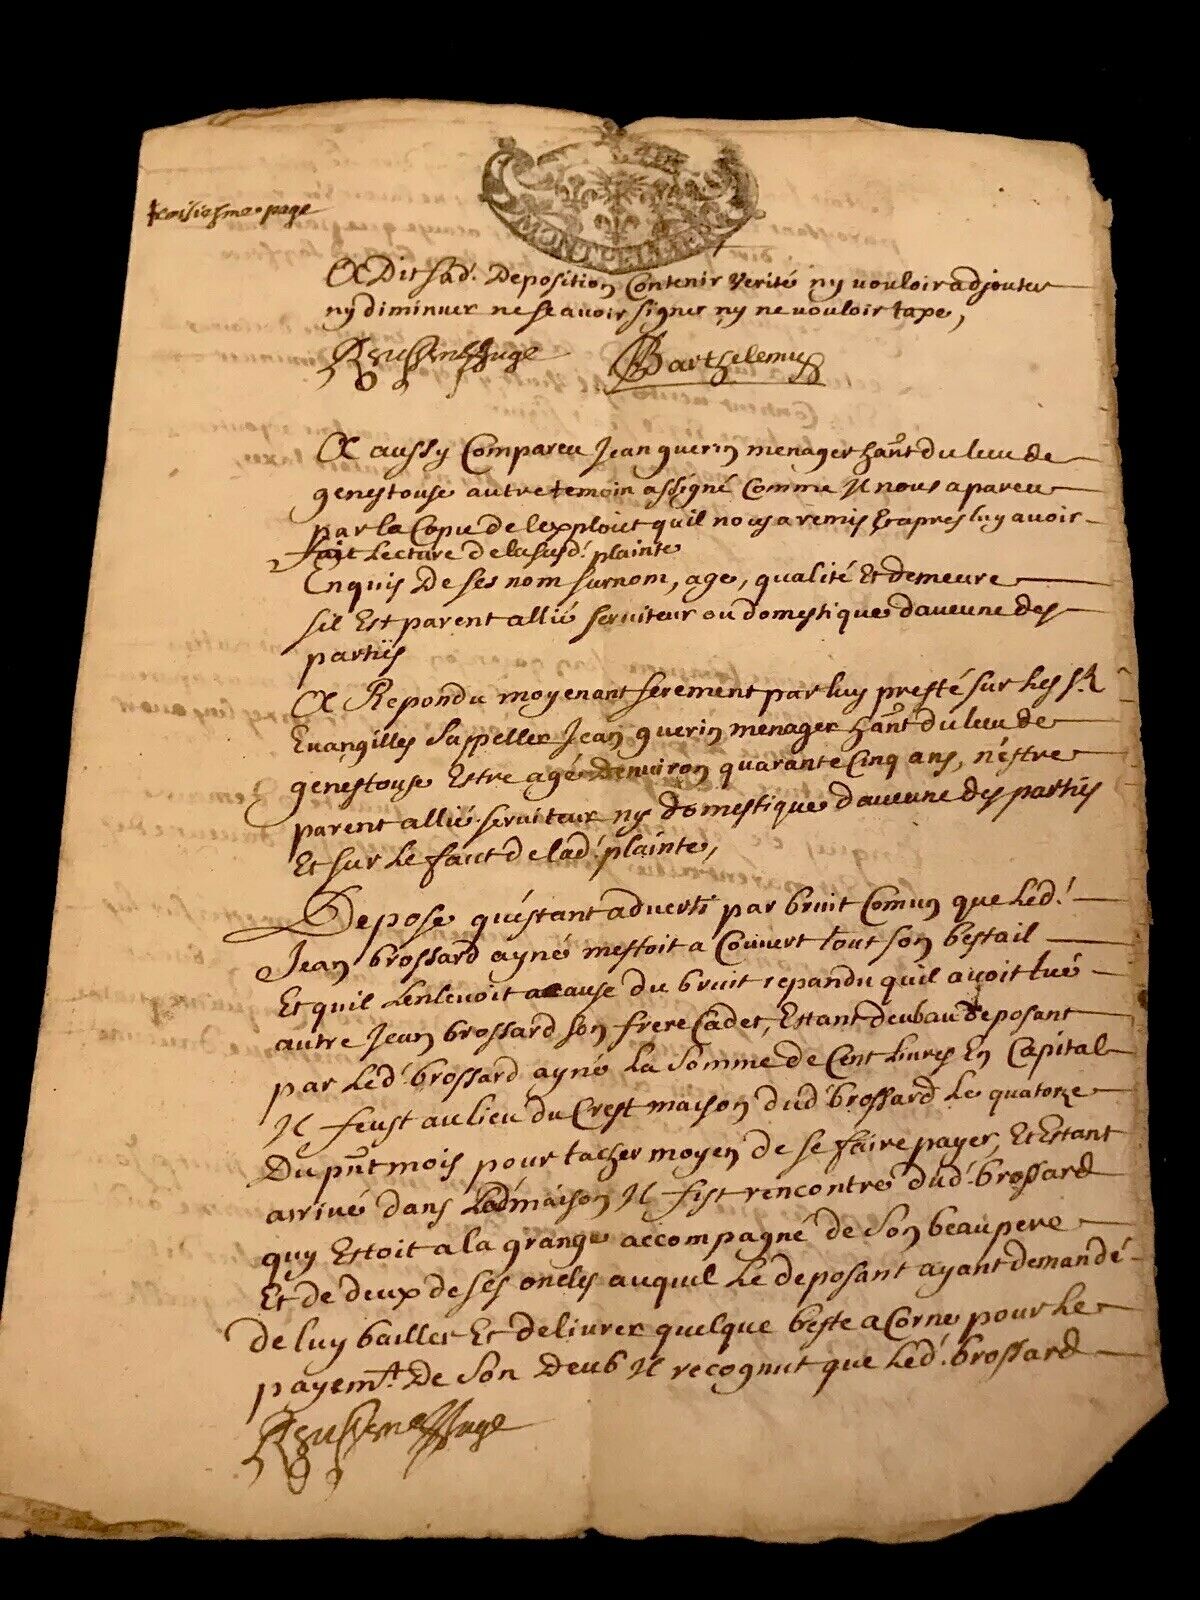 troisiesme page
MONTPELLIER
A Dit sad. Deposition Contenir Verité ny vouloir adjouter
ny diminuer ne scavoir signer ny ne vouloir taxe,
Juge Barthelemy
A aussy Compareu Jean guerin menager hãnt du lieu de
genestouse autre temoin assigné Comme Il nous apareu
par la Copie de lexploict quil nous a remis Et apres luy avoir
fait Lecture de la susd. plainte
Enquis De ses nom surnom, age, qualité Et demeure
sil Est parent allié serviteur ou domestique daucune des
partiés
A Repondu moyenant serement par luy presté sur Les sts
Evangilles Sappeller Jean guerin menager hãnt du lieu de
genestouse Estre agé Denviron quarante Cinq ans, n'estre
parent allié serviteur ny domestique daucune des partiés
Et sur Le fait de lad. plainte,
Depose qu'estant adverti par bruit Comun que Led.
Jean brossard ayné mestoit a Couvert tout son bestail
Et quil Lenlevoit acause du bruit repandu quil avoit tué
autre Jean brossard son frere Cadet, Estant deub au Deposant
par Led. brossard ayné La Somme de Cent Livres En Capital
Il feust au lieu du Crest maison dud. brossard Le quatorze
Du pñt mois pour tacher moyen de se faire payer, Et Estant
arrivé dans Lad. maison Il fist rencontre dud. brossard
quy Estoit a la grange accompagné de Son beaupere
Et de deux de ses oncles auquel Le deposant ayant demandé
de luy bailler Et delivrer quelque beste a Corne pour Le
payemt. De Son Deub Il recognut que Led. brossard
Juge